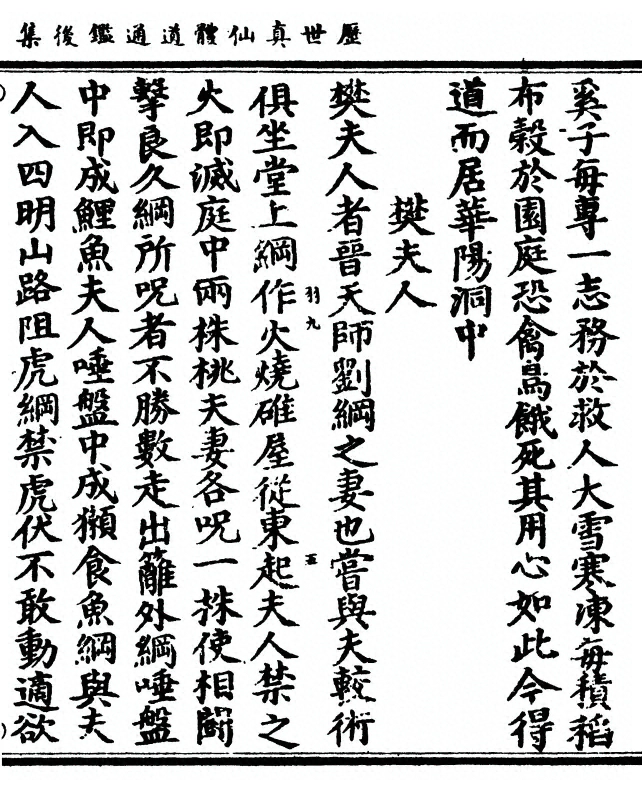 歷世真仙體道通鑑後集
奚子每尊一志務於救人大雪寒凍每積稻
布穀於園庭恐禽鳥餓死其用心如此今得
道而居華陽洞中
樊夫人
樊夫人者晉天師劉綱之妻也嘗與夫較術
羽九
五
俱坐堂上綱作火燒碓屋從東起夫人禁之
火即滅庭中兩株桃夫妻各呪一株使相鬬
擊良久綱所呪者不勝數走出籬外綱唾盤
中即成鯉魚夫人唾盤中成獺食魚綱與夫
人入四明山路阻虎綱禁虎伏不敢動適欲